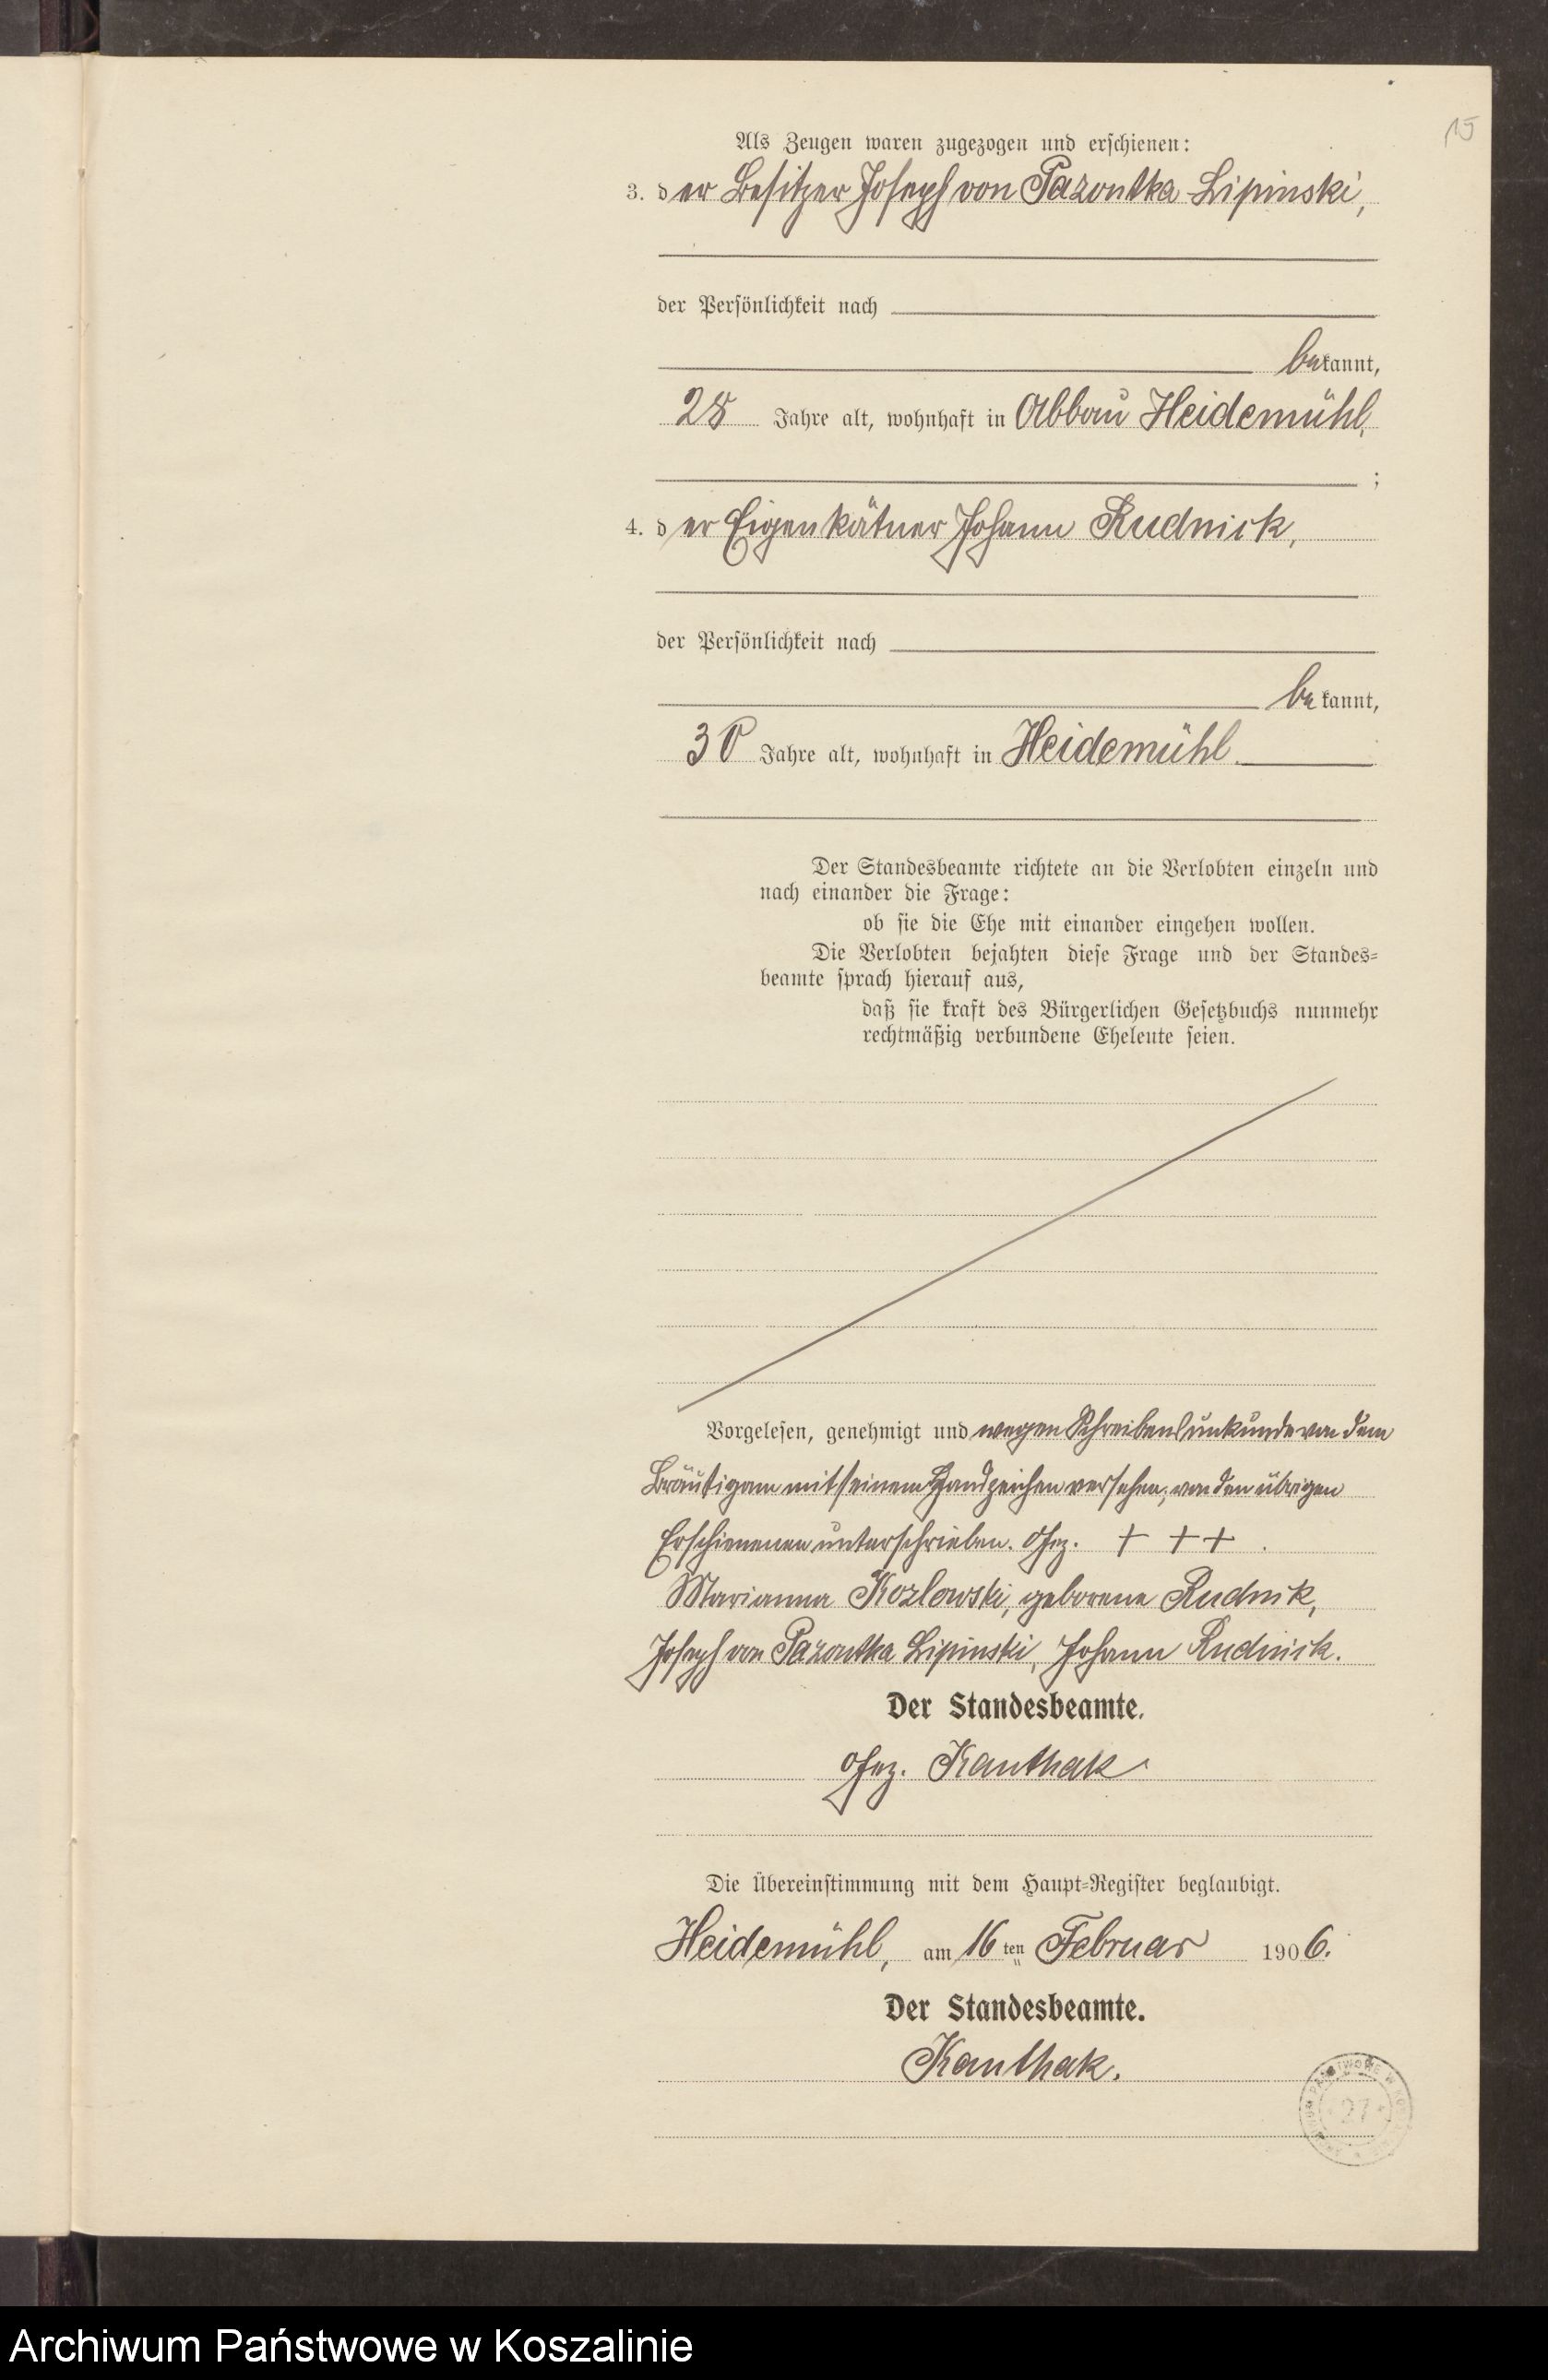 15
Als Zeugen waren zugezogen und erschienen:
3. der Besitzer Joseph von Pazontka Lipinski,
der Persönlichkeit nach
bekannt,
28 Jahre alt, wohnhaft in Abbau Heidemühl,
;
4. der Eigenkätner Johann Rudnick,
der Persönlichkeit nach
bekannt,
30 Jahre alt, wohnhaft in Heidemühl
Der Standesbeamte richtete an die Verlobten einzeln und
nach einander die Frage:
ob sie die Ehe mit einander eingehen wollen.
Die Verlobten bejahten diese Frage und der Standes-
beamte sprach hierauf aus,
daß sie kraft des Bürgerlichen Gesetzbuchs nunmehr
rechtmäßig verbundene Eheleute seien.
Vorgelesen, genehmigt und wegen Schreibensunkunde von dem
Bräutigam mit seinem Handzeichen versehen, von den übrigen
Erschienenen unterschrieben. Gez. + + +
Marianna Kozlowski, geborene Rudnik,
Joseph von Pazontka Lipinski, Johann Rudnick.
Der Standesbeamte.
Gez. Kanthak
Die Übereinstimmung mit dem Haupt-Register beglaubigt.
Heidemühl, am 16 ten Februar 1906.
Der Standesbeamte.
Kanthak.
27
Archiwum Państwowe w Koszalinie